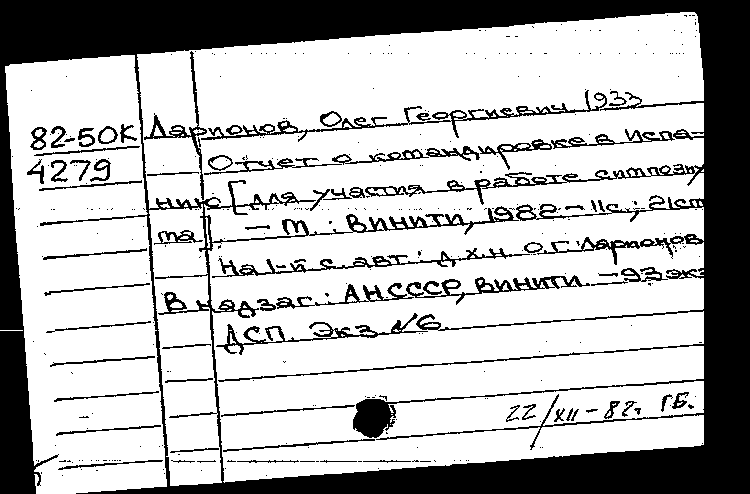 82-50К Ларионов, Олег Георгиевич, 1933
4279 Отчет о командировке в Испа=
нию [для участия в работе симпозиу
ма]. — М.: ВИНИТИ, 1982 – 11с.; 21см
На 1-й с. авт.: д.х.н. О.Г. Ларионов
В надзаг.: АН СССР, ВИНИТИ. – 93 экз
ДСП. Экз №6.
22/XII – 82г. ГБ.